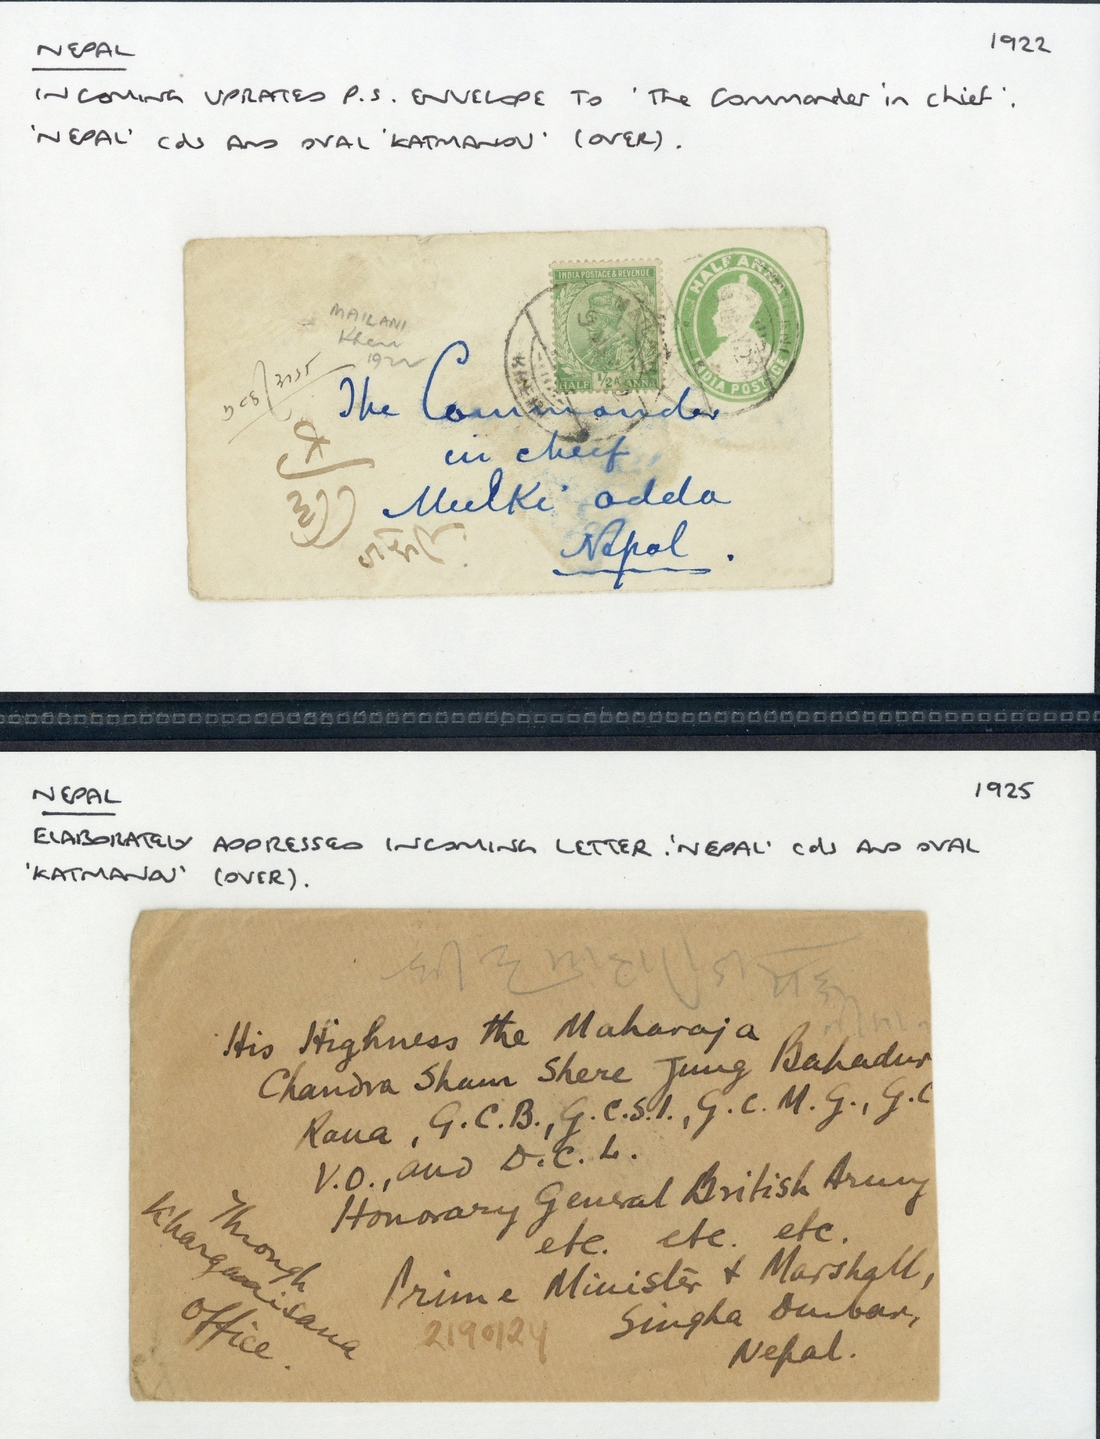 NEPAL
1922
INCOMING UPRATED P.S. ENVELOPE TO 'The Commander in chief'.
'NEPAL' cds AND OVAL 'KATMANDU' (OVER).
INDIA POSTAGE & REVENUE
HALF 1/2A ANNA
HALF ANNA
INDIA POSTAGE
KHERI
MAILANI
Kheri
1922
The Commander
in cheif
Mulki adda
Nepal.
NEPAL
1925
ELABORATELY ADDRESSED INCOMING LETTER. 'NEPAL' cds AND OVAL
'KATMANDU' (OVER).
His Highness the Maharaja
Chandra Sham Shere Jung Bahadur
Rana, G.C.B., G.C.S.I., G.C.M.G., G.C
V.O., and D.C.L.
Honorary General British Army
etc. etc. etc.
Prime Minister & Marshall,
Singha Durbar,
Nepal.
Through
Office.
2190124